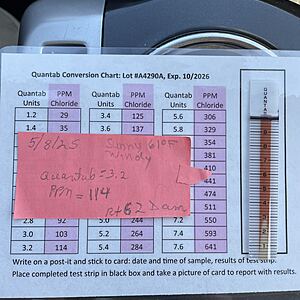 Quantab Conversion Chart: Lot #A4290A, Exp. 10/2026
Quantab Units PPM Chloride Quantab Units PPM Chloride Quantab Units PPM Chloride
1.2 29 3.4 125 5.6 306
1.4 35 3.6 137 5.8 329
354
381
410
441
474
5/8/25 Sunny 61°F
Windy
Quantab = 3.2
PPM = 114
Rt 62 Dam
2.8 92 5.0 244 7.2 550
3.0 103 5.2 264 7.4 593
3.2 114 5.4 284 7.6 641
QUANTAB
Write on a post-it and stick to card: date and time of sample, results of test strip.
Place completed test strip in black box and take a picture of card to report with results.